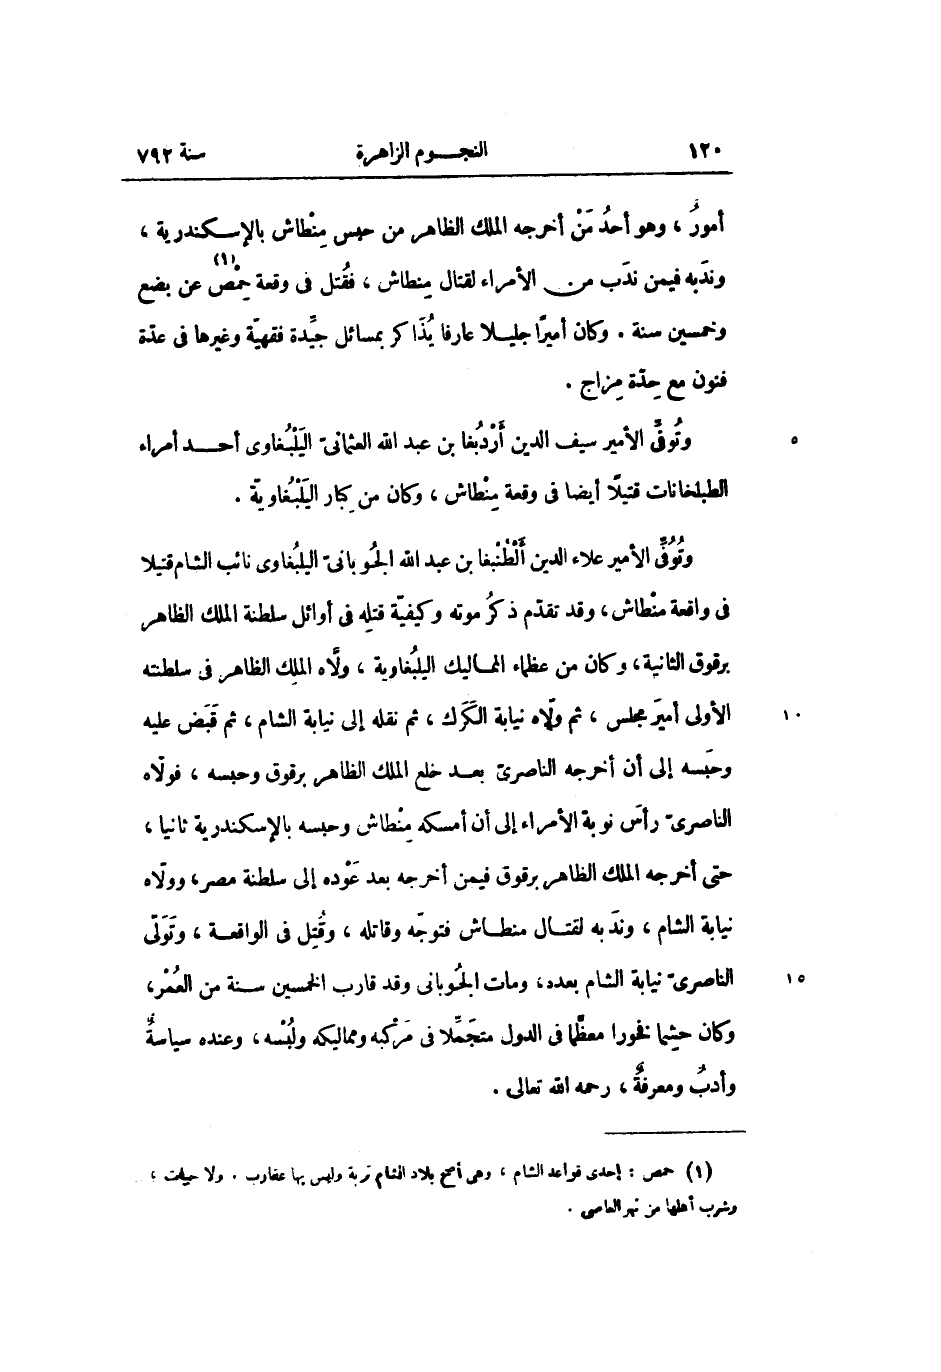 ١٢٠ النجوم الزاهرة سنة ٧٩٢
أمورٌ ، وهو أحدُ مَنْ أخرجه الملك الظاهر من حبس مِنْطاش بالإسكندرية ،
وندَبه فيمن ندَب من الأمراء لقتال مِنطاش ، فقُتل فى وقعة حِمْص (١) عن بضع
وخمسين سنة . وكان أميرًا جليلا عارفا يُذَاكر بمسائل جيِّدة فقهيّة وغيرها فى عدّة
فنون مع حِدّة مِزاج .
وتُوفِّى الأمير سيف الدين أَرْدُبغا بن عبد الله العثمانىّ اليَلْبُغاوى أحد أمراء
٥
الطبلخانات قتيلًا أيضا فى وقعة مِنْطاش ، وكان من كِبار اليَلْبُغاويّة .
وتُوُفِّى الأمير علاء الدين أَلْطُنْبغا بن عبد الله الجُوبانىّ اليلبُغاوى نائب الشام قتيلا
فى واقعة منْطاش ، وقد تقدّم ذكرُ موته وكيفيّة قتلِه فى أوائل سلطنة الملك الظاهر
برقوق الثانية ، وكان من عظماء المماليك اليلبُغاوية ، ولَّاه الملِك الظاهر فى سلطنته
الأولى أميرَ مجلس ، ثم ولّاه نيابة الكَرَك ، ثم نقله إلى نيابة الشام ، ثم قَبَض عليه
١٠
وحبَسه إلى أن أخرجه الناصرىّ بعد خلع الملك الظاهر برقوق وحبسه ، فولّاه
الناصرىّ رأسَ نوبة الأمراء إلى أن أمسكه مِنْطاش وحبسه بالإسكندرية ثانيا ،
حتى أخرجه الملك الظاهر برقوق فيمن أخرجه بعد عَوْده إلى سلطنة مصر ، وولّاه
نيابة الشام ، وندَبه لقتال منطاش فتوجّه وقاتله ، وقُتِل فى الواقعة ، وتَوَلّى
الناصرىّ نيابة الشام بعده ، ومات الجُوبانى وقد قارب الخمسين سنة من العُمْر ،
١٥
وكان حشيما فخورا معظَّما فى الدول متجَمِّلا فى مَرْكبه ومماليكه ولُبْسه ، وعنده سياسةٌ
وأدبٌ ومعرفةٌ ، رحمه الله تعالى .
(١) حمص : إحدى قواعد الشام ، وهى أصح بلاد الشام تربة وليس بها عقارب . ولا حيات ،
وشرب أهلها من نهر العاصى .